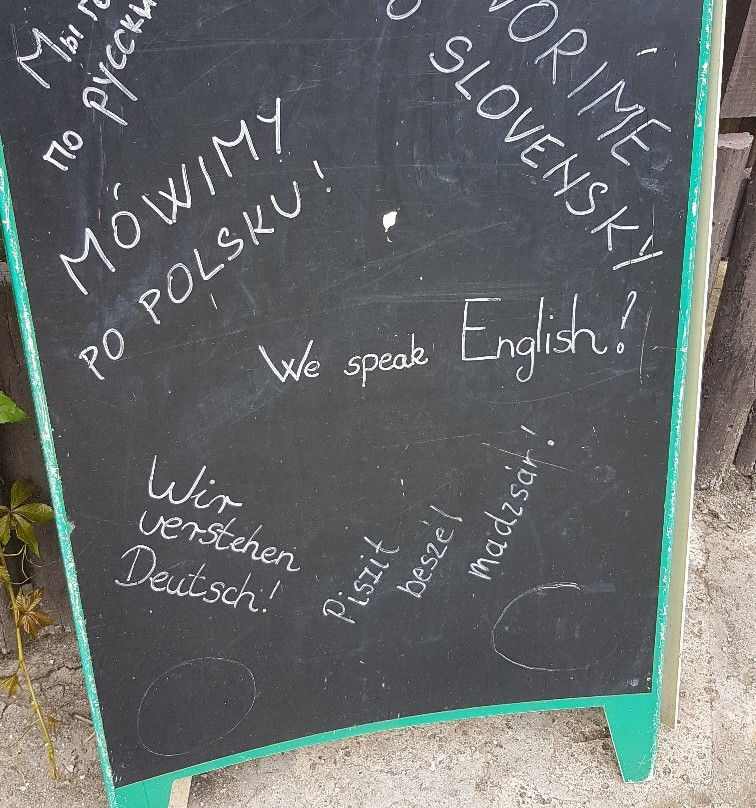 Мы
по русски
VORÍME
SLOVENSKY
MÓWIMY
PO POLSKU!
We speak English!
Wir
verstehen
Deutsch!
Piszit
beszél
madzsár!